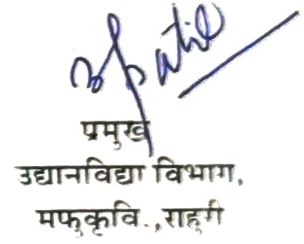 प्रमुख
उद्यानविद्या विभाग,
मफुकृवि.,राहुरी